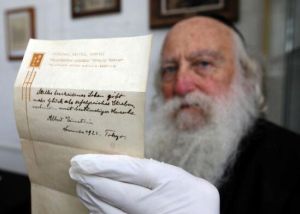 Stilles bescheidenes Leben gibt
mehr Glück als erfolgreiches Streben,
verbunden mit beständiger Unruhe.
Albert Einstein.
November 1922. Tokyo.